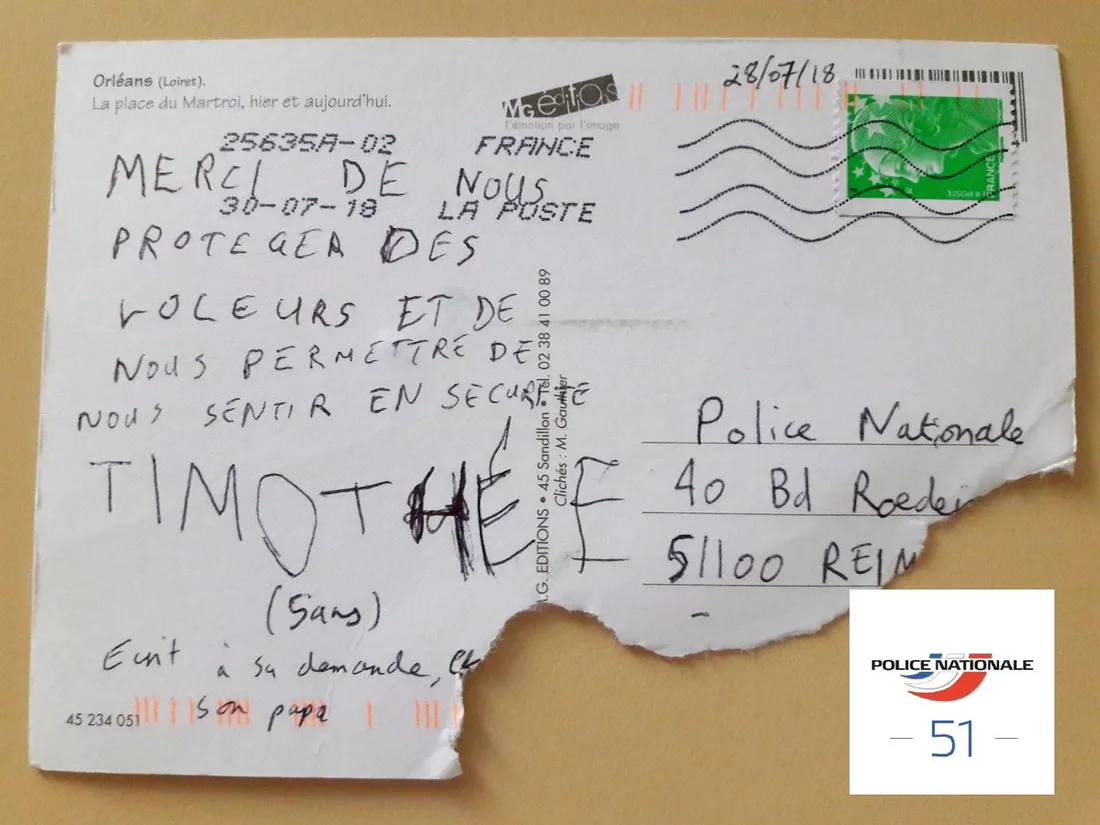 Orléans (Loiret).
La place du Martroi, hier et aujourd'hui.
MG éditions
l'émotion par l'image
28/07/18
25635A-02 FRANCE
30-07-18 LA POSTE
FRANCE
LA POSTE
MERCI DE NOUS
PROTEGER DES
VOLEURS ET DE
NOUS PERMETTRE DE
NOUS SENTIR EN SECURITE
TIMOTHÉE
(5ans)
Ecrit à sa demande,
son papa
45 234 051
M.G. EDITIONS • 45 Sandillon • Tél. 02 38 41 00 89
Clichés : M. Gauthier
Police Nationale
40 Bd Roede
51100 REIM
POLICE NATIONALE
- 51 -